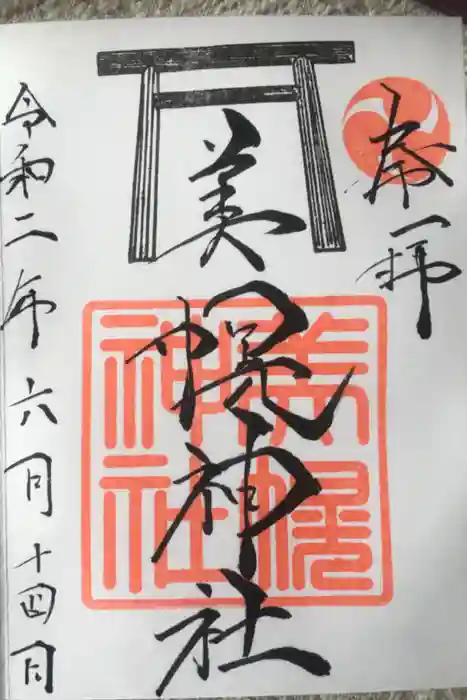 奉拝
美幌神社
美幌神社
令和二年六月十四日